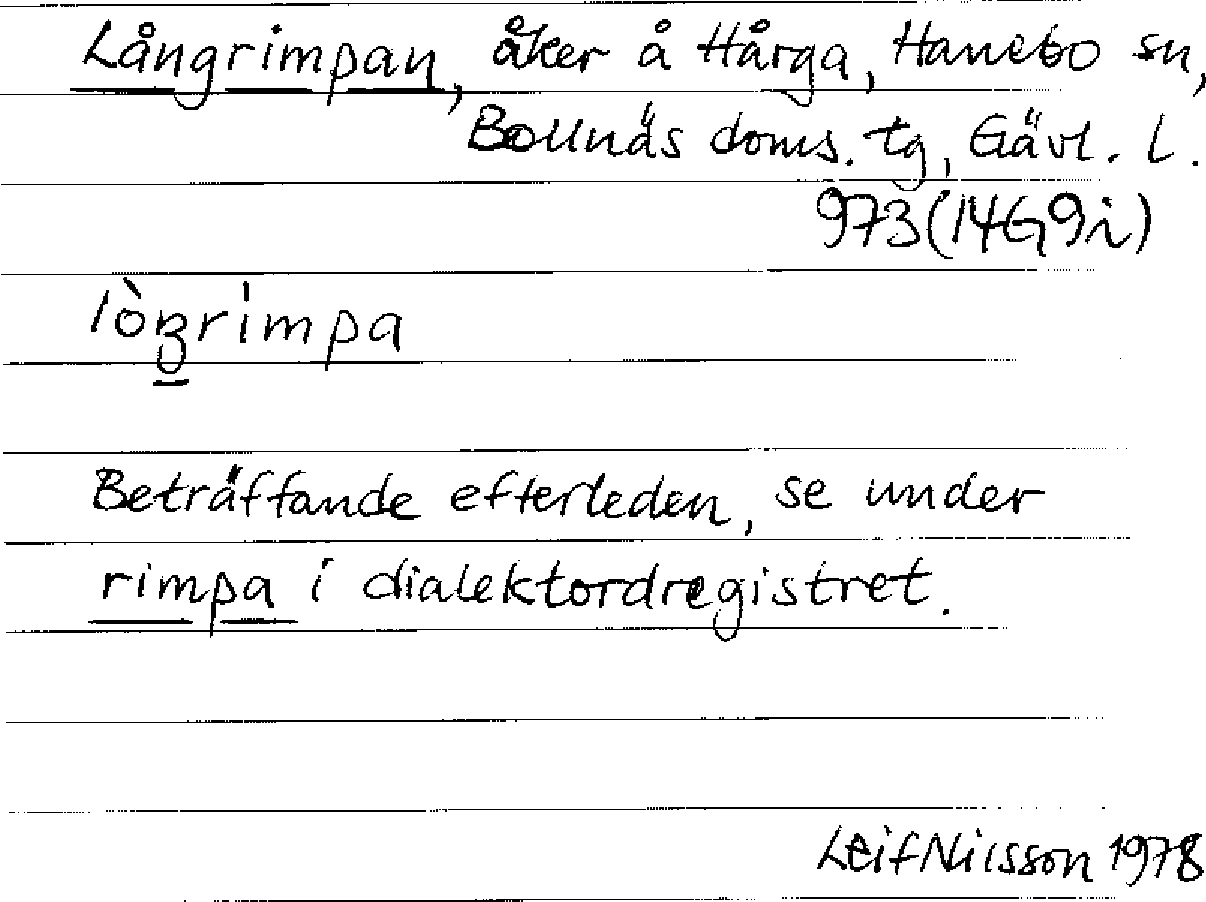 Långrimpan, åker å Hårga, Hanebo sn,
Bollnäs doms. tg, Gävl. l.
973 (14G9i)
lòŋrimpa
Beträffande efterleden, se under
rimpa i dialektordregistret.
Leif Nilsson 1978